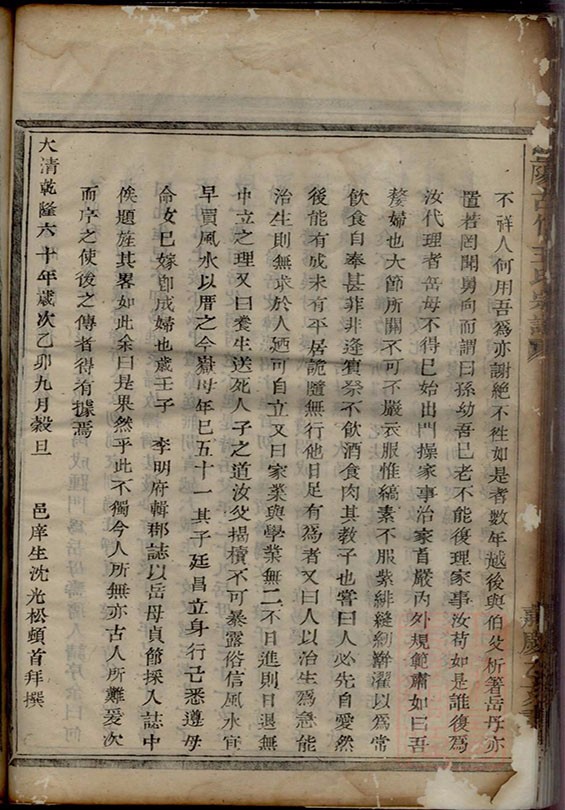 不祥人何用吾爲亦謝絕不徃如是者數年越後與伯父析箸岳母亦
置若罔聞舅向而謂曰孫幼吾已老不能復理家事汝苟如是誰復爲
汝代理者岳母不得已始出門操家事治家首嚴內外規範肅如曰吾
嫠婦也大節所關不可不嚴衣服惟縞素不服紫緋縫紉澣濯以爲常
飲食自奉甚菲非逢賓祭不飲酒食肉其教子也嘗曰人必先自愛然
後能有成未有平居詭隨無行他日足有爲者又曰人以治生爲急能
治生則無求於人廼可自立又曰家業與學業無二不日進則日退無
中立之理又曰養生送死人子之道汝父揭櫝不可暴露俗信風水宜
早買風水以厝之今嶽母年已五十一其子廷昌立身行己悉遵母
命女已嫁卽成婦也歲壬子 李明府輯郡誌以岳母貞節採入誌中
俟題旌其畧如此余曰是果然乎此不獨今人所無亦古人所難爰次
而序之使後之傳者得有據焉
大清乾隆六十年歲次乙卯九月穀旦 邑庠生沈光松頓首拜撰